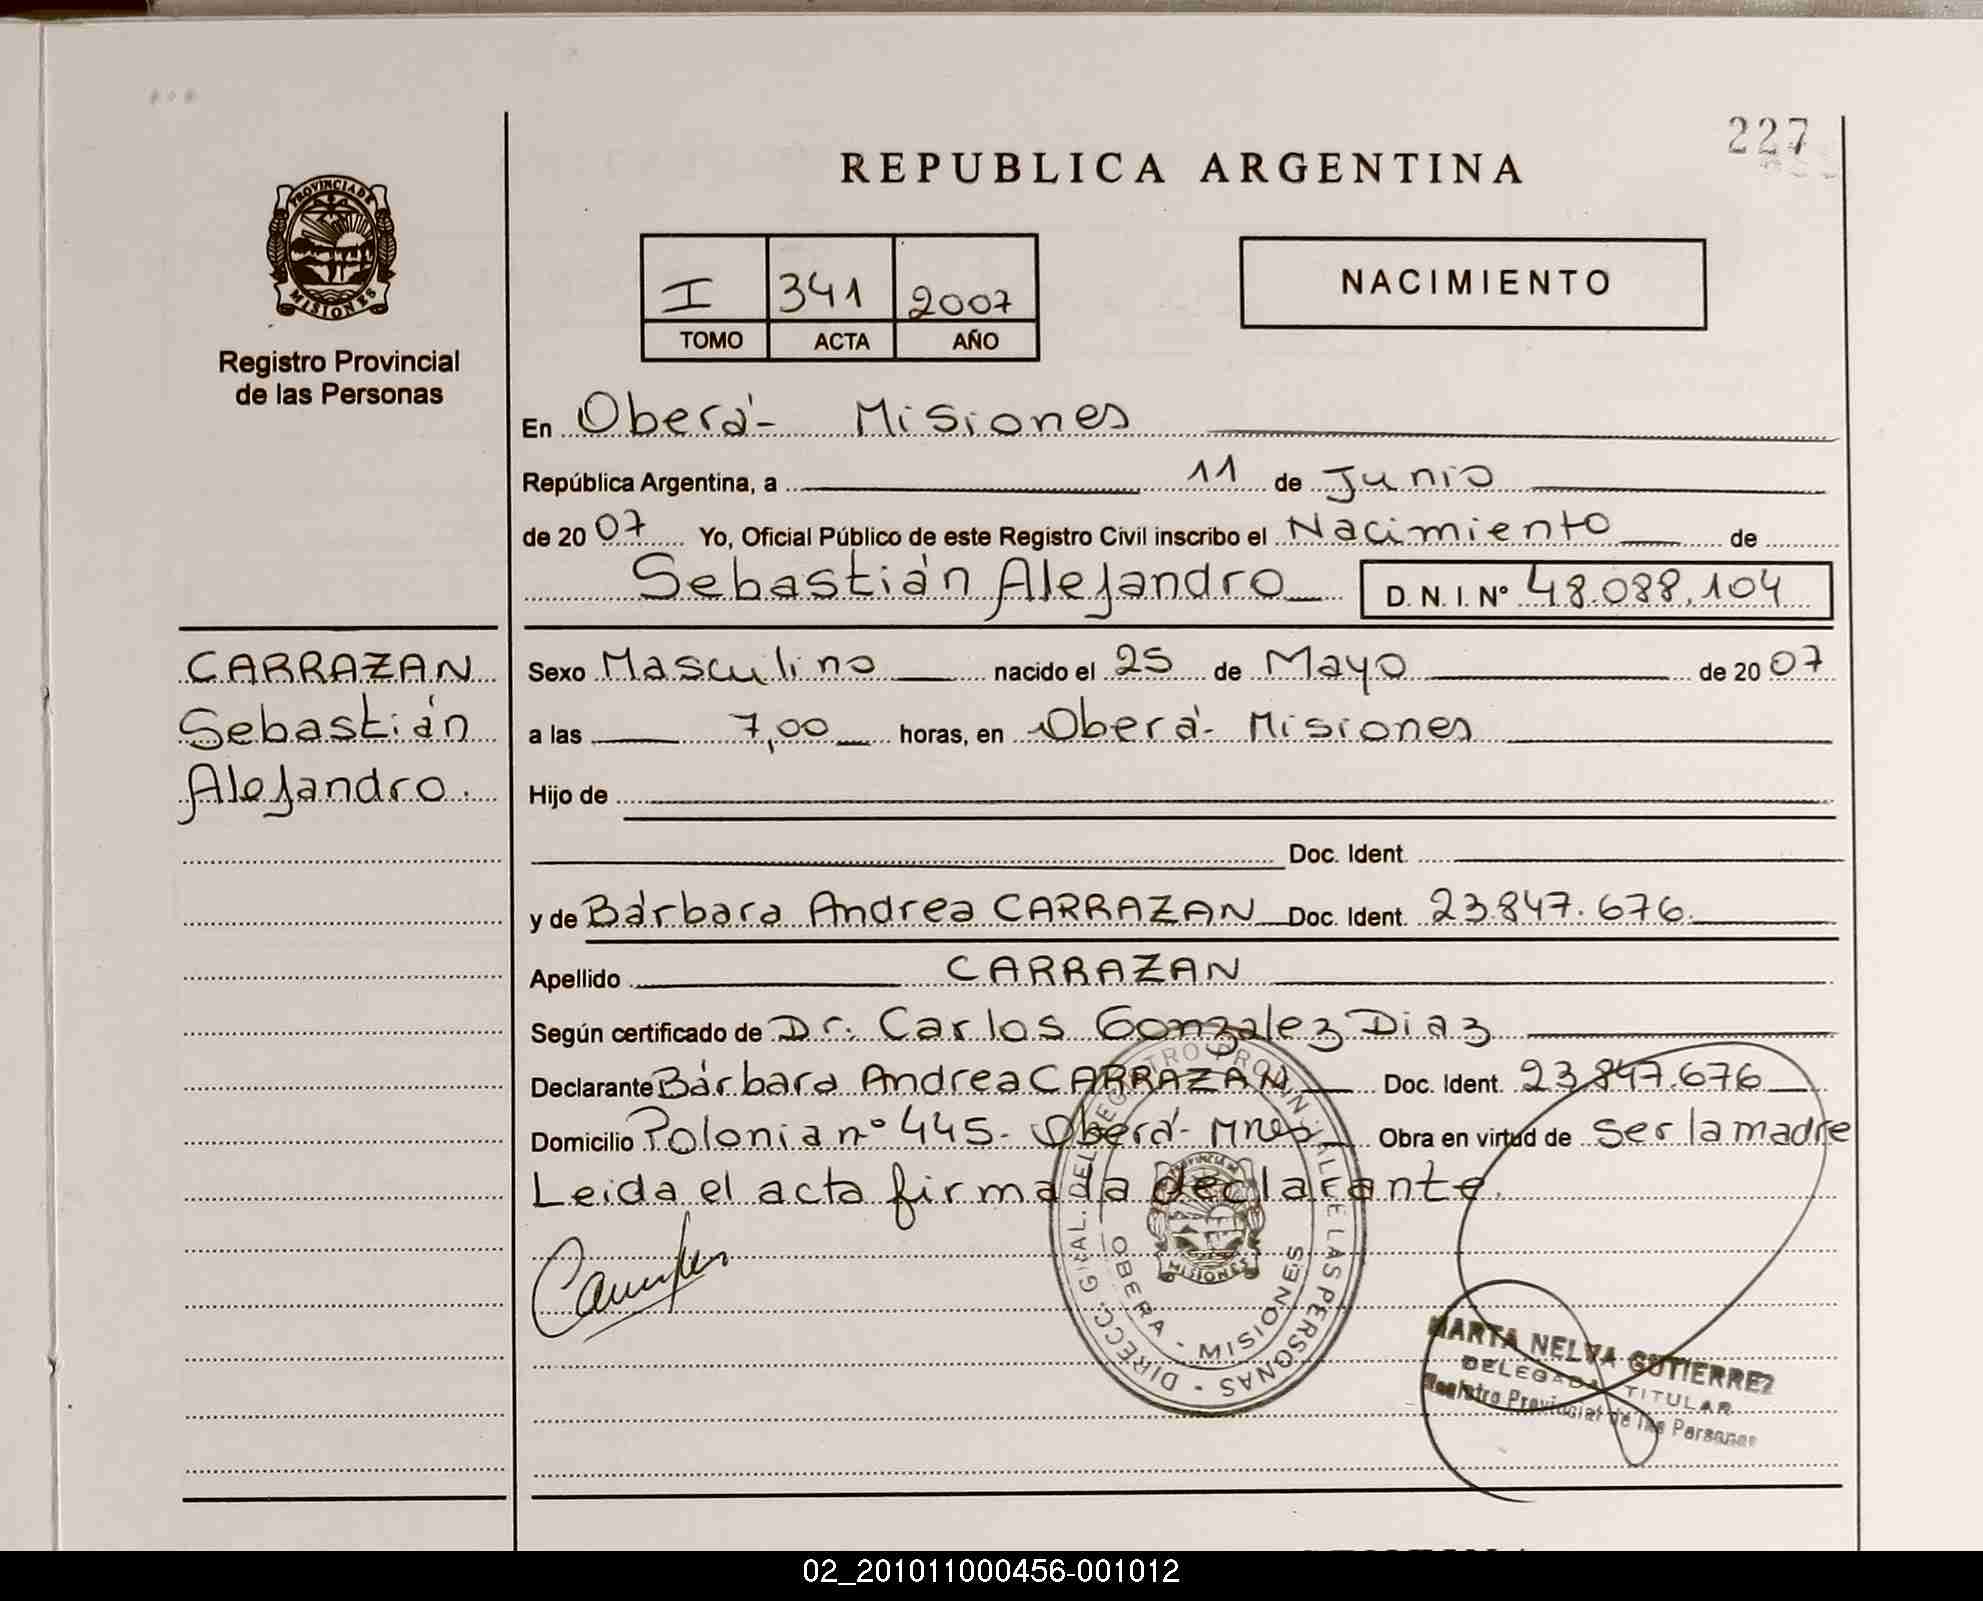 227
REPUBLICA ARGENTINA
PROVINCIA DE
MISIONES
Registro Provincial
de las Personas
I 341 2007
TOMO ACTA AÑO
NACIMIENTO
En Oberá- Misiones
República Argentina, a 11 de Junio
de 2007 Yo, Oficial Público de este Registro Civil inscribo el Nacimiento de
Sebastián Alejandro D. N. I. N° 48.088.104
CARRAZAN
Sebastián
Alejandro.
Sexo Masculino nacido el 25 de Mayo de 2007
a las 7,00 horas, en Oberá- Misiones
Hijo de
Doc. Ident.
y de Bárbara Andrea CARRAZAN Doc. Ident. 23.847.676.
Apellido CARRAZAN
Según certificado de Dr. Carlos Gonzalez Diaz
Declarante Bárbara Andrea CARRAZAN Doc. Ident. 23.847.676
Domicilio Polonia n° 445- Oberá- Mnes Obra en virtud de ser la madre
Leida el acta firma da la declarante.
DIRECC. GRAL. DEL REGISTRO PROVINCIAL DE LAS PERSONAS
PROVINCIA DE
MISIONES
OBERA - MISIONES
MARTA NELVA GUTIERREZ
DELEGADA TITULAR
Registro Provincial de las Personas
02_201011000456-001012